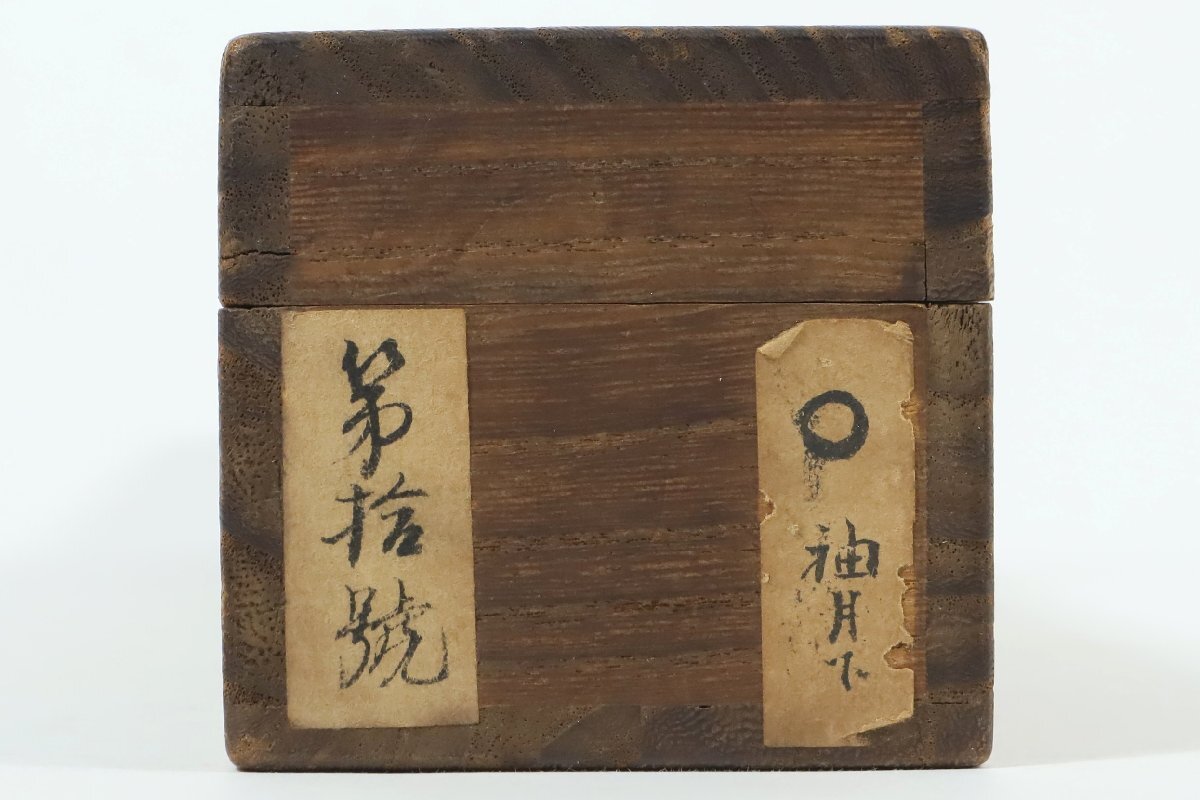 ○ 袖月下
第拾號